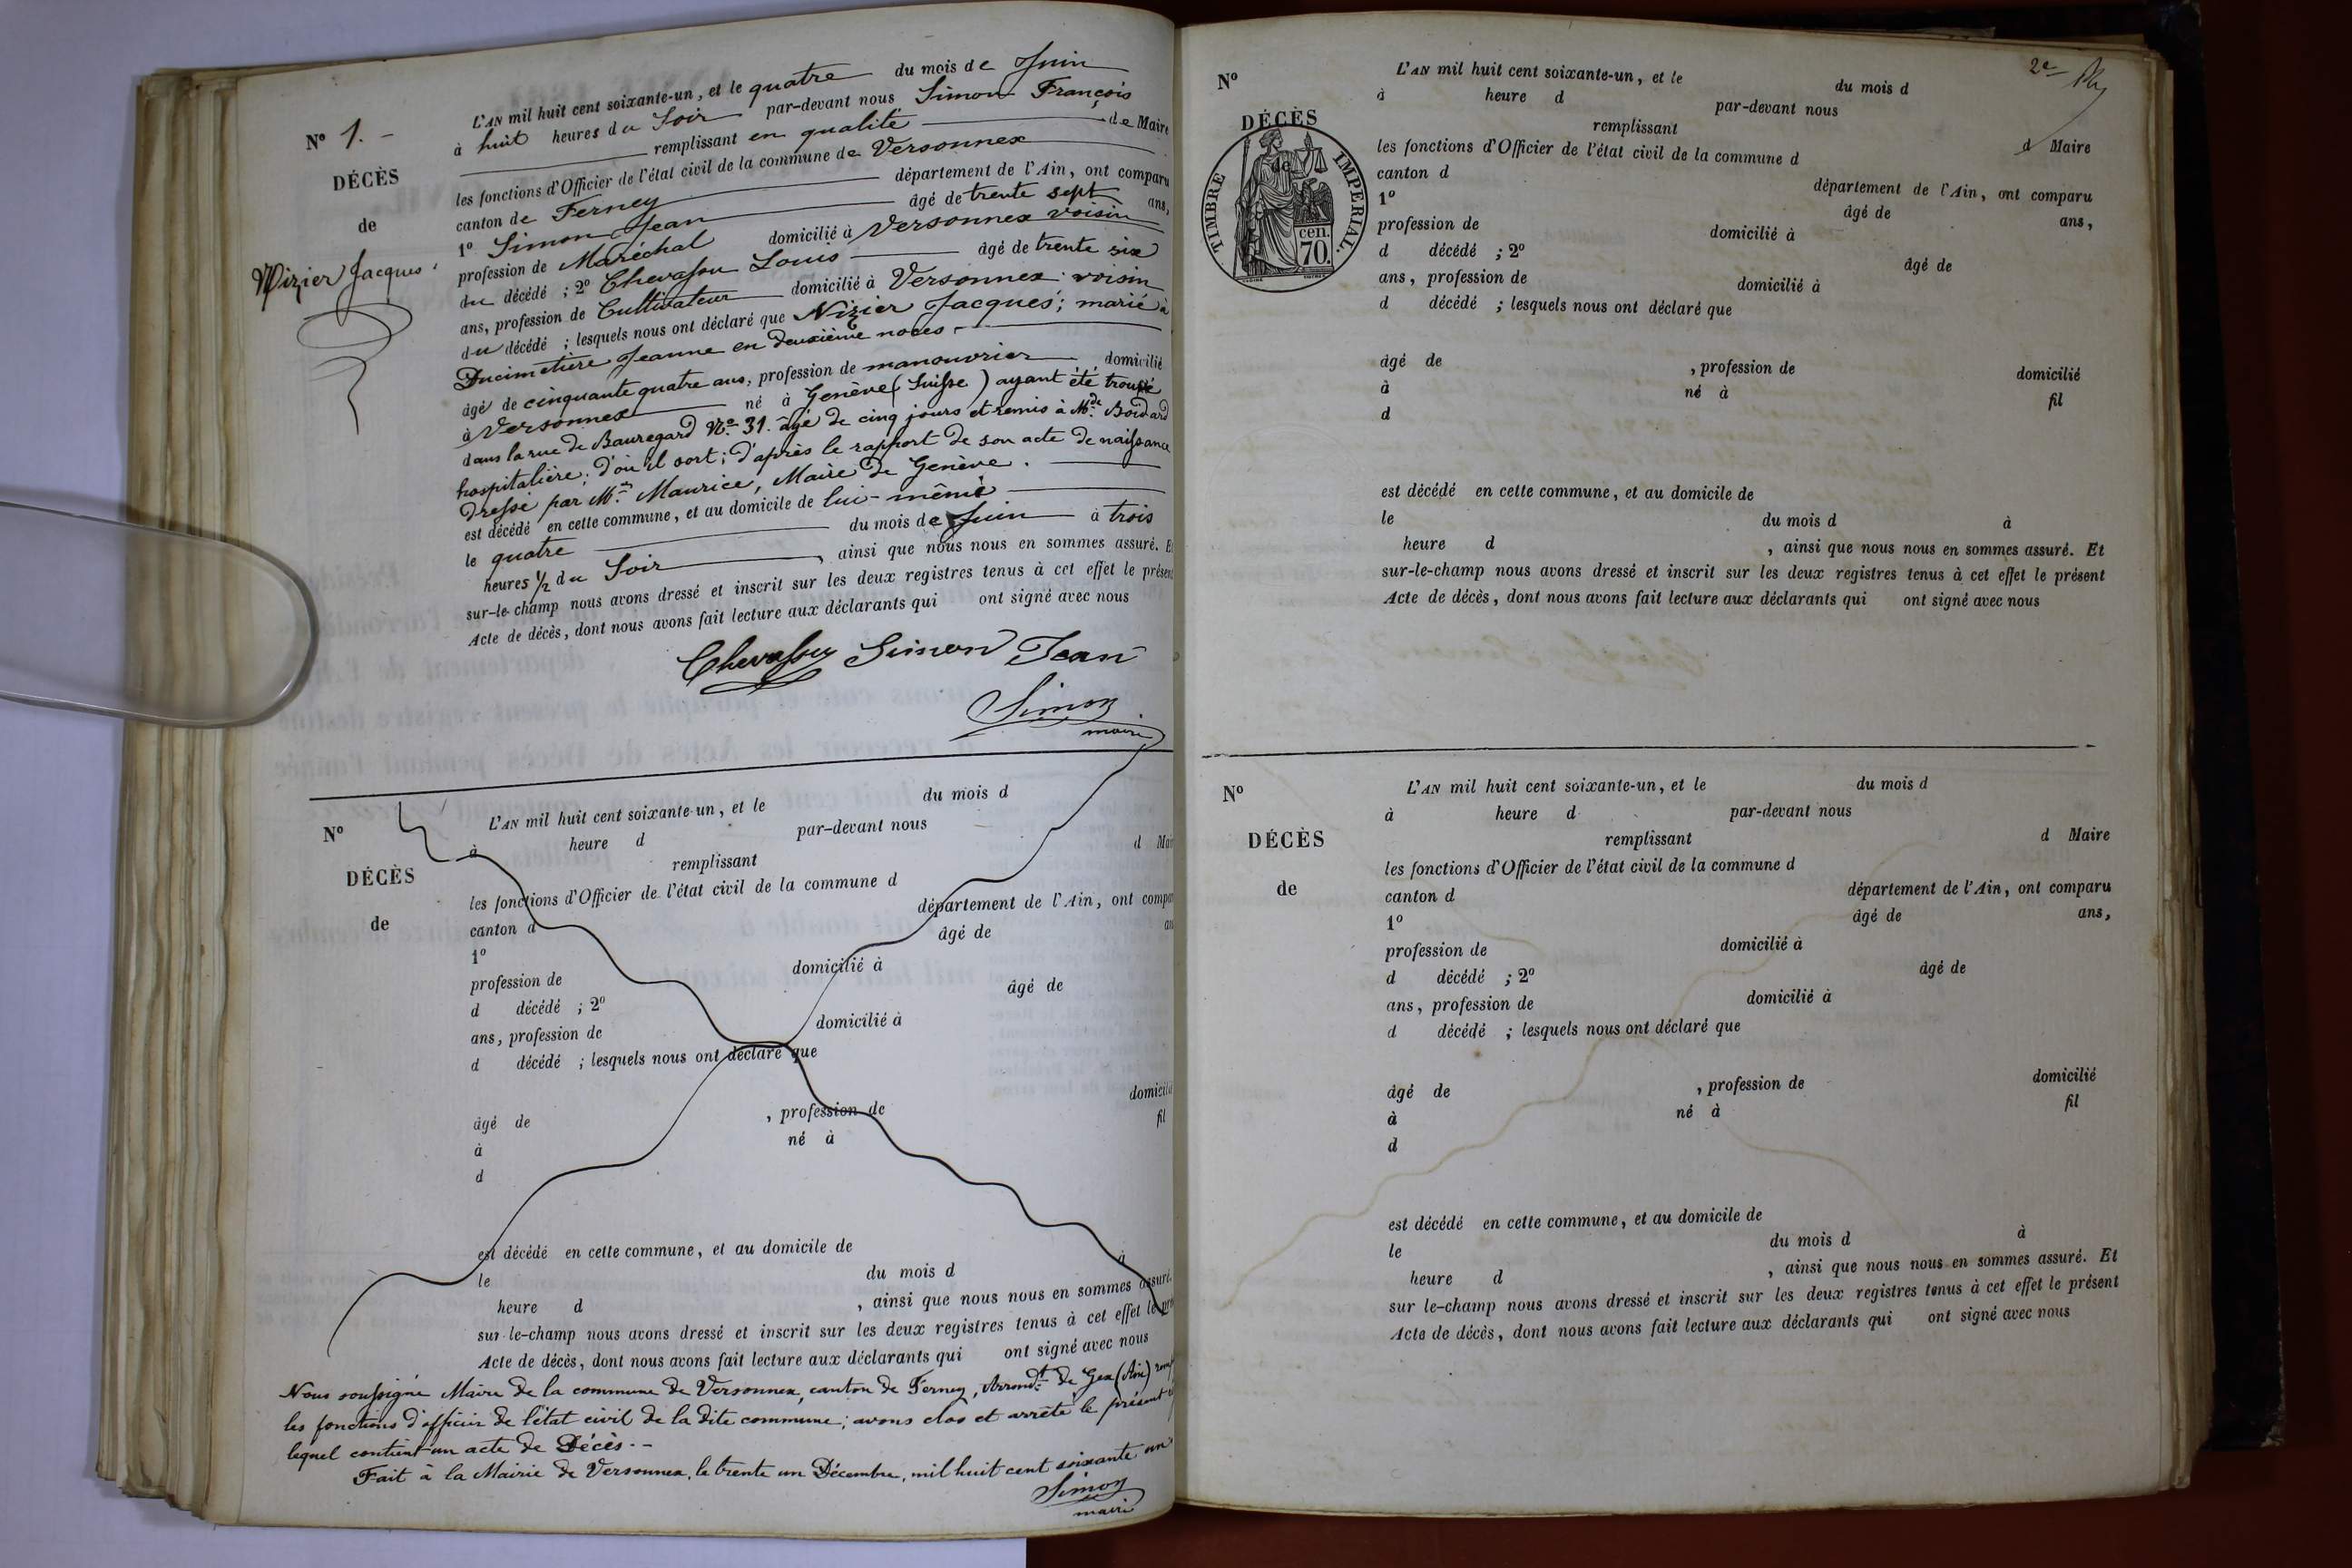 N° 1. -
DÉCÈS
de
Nizier Jacques
L'AN mil huit cent soixante-un, et le quatre du mois de Juin
à huit heures du Soir par-devant nous Simon François
remplissant en qualité de Maire
les fonctions d'Officier de l'état civil de la commune de Versonnex
canton de Ferney département de l'Ain, ont comparu
1° Simon Jean âgé de trente sept ans,
profession de Maréchal domicilié à Versonnex voisin
du décédé ; 2° Chevassu Louis âgé de trente six
ans, profession de Cultivateur domicilié à Versonnex : voisin
du décédé ; lesquels nous ont déclaré que Nizier Jacques; marié à
Ducimetière Jeanne en deuxième noces -
âgé de cinquante quatre ans, profession de manouvrier domicilié
à Versonnex né à Genève (Suisse) ayant été trouvé
dans la rue de Bauregard N° 31. âgé de cinq jours et remis à Mde Boidard
hospitalière; d'où il sort; d'après le rapport de son acte de naissance
dressé par Mr Maurice, Maire de Genève.
est décédé en cette commune, et au domicile de lui-même
le quatre du mois de Juin à trois
heures ½ du Soir, ainsi que nous nous en sommes assuré. E
sur-le-champ nous avons dressé et inscrit sur les deux registres tenus à cet effet le présen
Acte de décès, dont nous avons fait lecture aux déclarants qui ont signé avec nous
Chevassu Simon Jean
Simon
maire
N°
DÉCÈS
de
L'AN mil huit cent soixante-un, et le du mois d
à heure d par-devant nous
remplissant d Mai
les fonctions d'Officier de l'état civil de la commune d
canton d département de l'Ain, ont compa
1° âgé de an
profession de domicilié à
d décédé ; 2° âgé de
ans, profession de domicilié à
d décédé ; lesquels nous ont déclaré que
âgé de , profession de domicilié
à né à fil
d
est décédé en cette commune, et au domicile de
le du mois d à
heure d , ainsi que nous nous en sommes assuré.
sur-le-champ nous avons dressé et inscrit sur les deux registres tenus à cet effet le pré
Acte de décès, dont nous avons fait lecture aux déclarants qui ont signé avec nous
Nous soussigné Maire de la commune de Versonnex, canton de Ferney, Arrondt de Gex (Ain)
les fonctions d'officier de l'état civil de la dite commune; avons clos et arrêté le présent
lequel contient un acte de Décès. -
Fait à la Mairie de Versonnex, le trente un Décembre, mil huit cent soixante un
Simon
maire
2e
N°
DÉCÈS
de
TIMBRE IMPÉRIAL.
cen.
70.
L'AN mil huit cent soixante-un, et le du mois d
à heure d par-devant nous
remplissant d Maire
les fonctions d'Officier de l'état civil de la commune d
canton d département de l'Ain, ont comparu
1° âgé de ans,
profession de domicilié à
d décédé ; 2° âgé de
ans, profession de domicilié à
d décédé ; lesquels nous ont déclaré que
âgé de , profession de domicilié
à né à fil
d
est décédé en cette commune, et au domicile de
le du mois d à
heure d , ainsi que nous nous en sommes assuré. Et
sur-le-champ nous avons dressé et inscrit sur les deux registres tenus à cet effet le présent
Acte de décès, dont nous avons fait lecture aux déclarants qui ont signé avec nous
N°
DÉCÈS
de
L'AN mil huit cent soixante-un, et le du mois d
à heure d par-devant nous
remplissant d Maire
les fonctions d'Officier de l'état civil de la commune d
canton d département de l'Ain, ont comparu
1° âgé de ans,
profession de domicilié à
d décédé ; 2° âgé de
ans, profession de domicilié à
d décédé ; lesquels nous ont déclaré que
âgé de , profession de domicilié
à né à fil
d
est décédé en cette commune, et au domicile de
le du mois d à
heure d , ainsi que nous nous en sommes assuré. Et
sur le-champ nous avons dressé et inscrit sur les deux registres tenus à cet effet le présent
Acte de décès, dont nous avons fait lecture aux déclarants qui ont signé avec nous